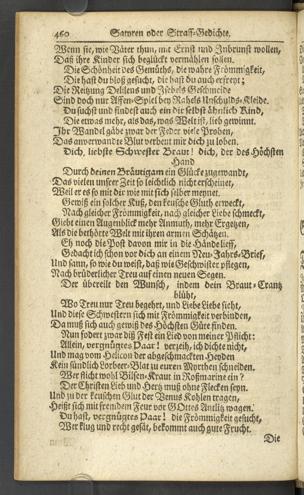 460 Satyren oder Straff-Gedichte.
Wenn sie, wie Väter thun, mit Ernst und Inbrunst wollen,
Daß ihre Kinder sich beglückt vermählen sollen.
Die Schönheit des Gemüths, die wahre Frömmigkeit,
Die hast du bloß gesucht, die hast du auch erfreyt;
Die Reitzung Delilens und Isebels Geschmeide
Sind doch nur Affen-Spiel bey Rahels Unschulds-Kleide.
Du suchst und findest auch ein dir selbst ähnlich Kind,
Die etwas mehr, als das, was Welt ist, lieb gewinnt.
Ihr Wandel gäbe zwar der Feder viele Proben,
Das anverwandte Blut verbeut mir dich zu loben.
Dich, liebste Schwester Braut! dich, der des Höchsten
Hand
Durch deinen Bräutigam ein Glücke zugewandt,
Das vielen unsrer Zeit so leichtlich nicht erscheinet,
Weil er es so mit dir wie mit sich selber meynet.
Gewiß ein solcher Kuß, den keusche Gluth erweckt,
Nach gleicher Frömmigkeit, nach gleicher Liebe schmeckt,
Giebt einen Augenblick mehr Anmuth, mehr Ergetzen,
Als die bethörte Welt mit ihren armen Schätzen.
Eh noch die Post davon mir in die Hände lieff,
Gedacht ich schon vor dich an einen Neu-Jahrs-Brief,
Und sann, so wie du weist, daß wie Geschwister pflegen,
Nach brüderlicher Treu auf einen neuen Segen.
Der übereilt den Wunsch, indem dein Braut-Crantz
blüht,
Wo Treu nur Treu begehrt, und Liebe Liebe sieht,
Und diese Schwestern sich mit Frömmigkeit verbinden,
Da muß sich auch gewiß des Höchsten Güte finden.
Nun fodert zwar diß Fest ein Lied von meiner Pflicht:
Allein, vergnügtes Paar! verzeih, ich dichte nicht,
Und mag vom Helicon der abgeschmackten Heyden
Kein sündlich Lorbeer-Blat zu euren Myrthen schneiden.
Wer flicht wohl Bilsen-Kraut in Roßmarine ein?
Der Christen Lieb und Hertz muß ohne Flecken seyn.
Und zu der keuschen Glut der Venus Kohlen tragen,
Heißt sich mit fremdem Feur vor GOttes Antlitz wagen.
Du hast, vergnügtes Paar! die Frömmigkeit gesucht,
Wer klug und recht gesät, bekommt auch gute Frucht.
Die